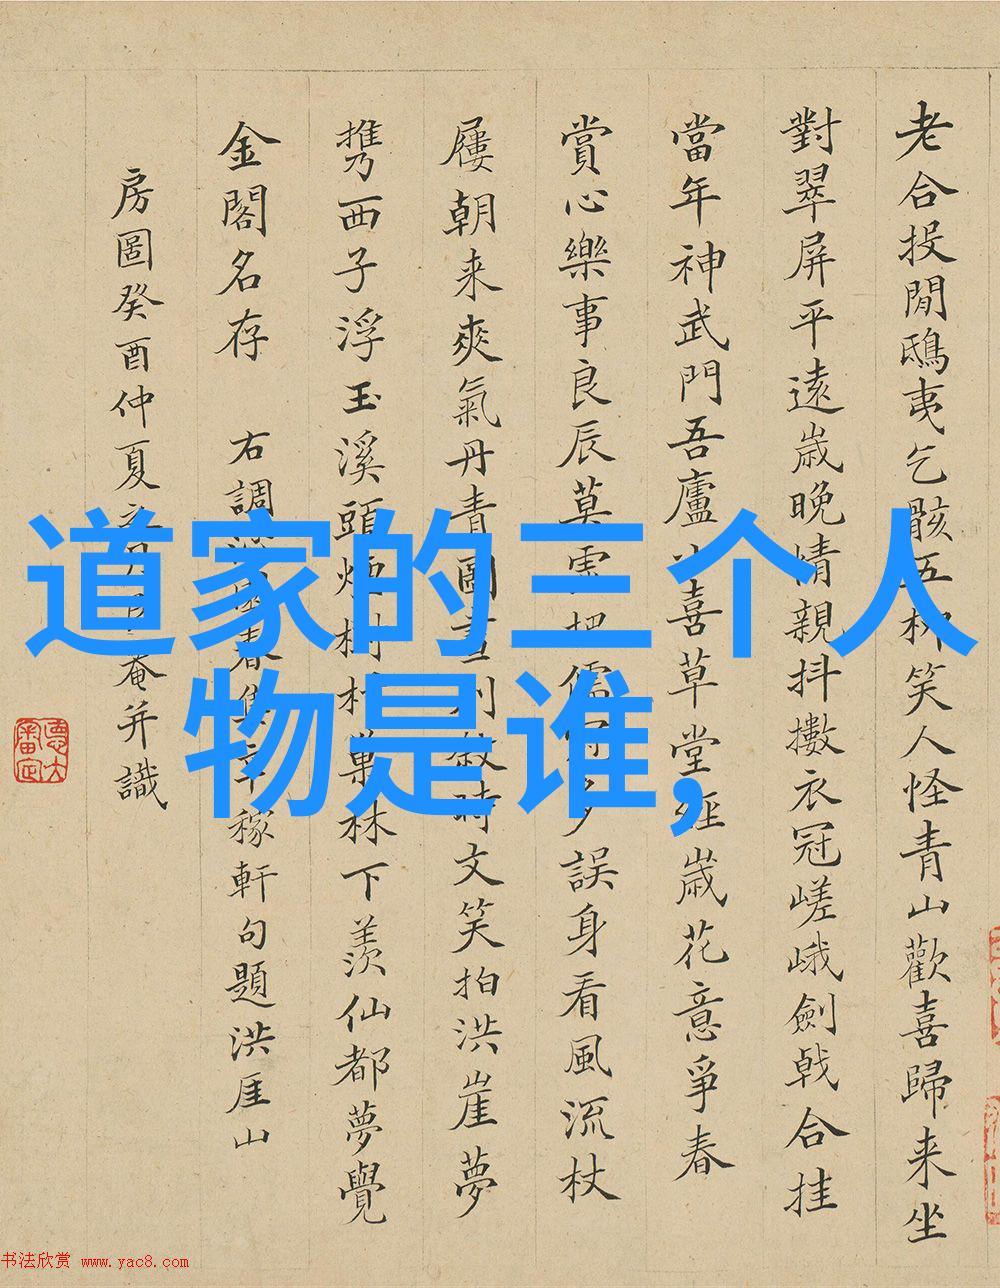 老合投閒鴟夷乞骸五柳笑人怪青山歡喜歸来坐
對翠屏平遠歳晩情親抖擻衣冠嵯峨劍戟合挂
當年神武門吾廬小喜草堂經歳花意爭春
賞心樂事良辰莫虛把儒冠多誤身看風流杖
屨朝来爽氣丹青圖畫列敘時文笑拍洪崖夢
携西子浮玉溪頭煙樹村巢林下羨仙都夢覺
金閣名存 右調沁園春集辛稼軒句題洪厓山
房圖癸酉仲夏 菴并識
道家的三个人
物是谁,
书法欣赏 www.yac8.com